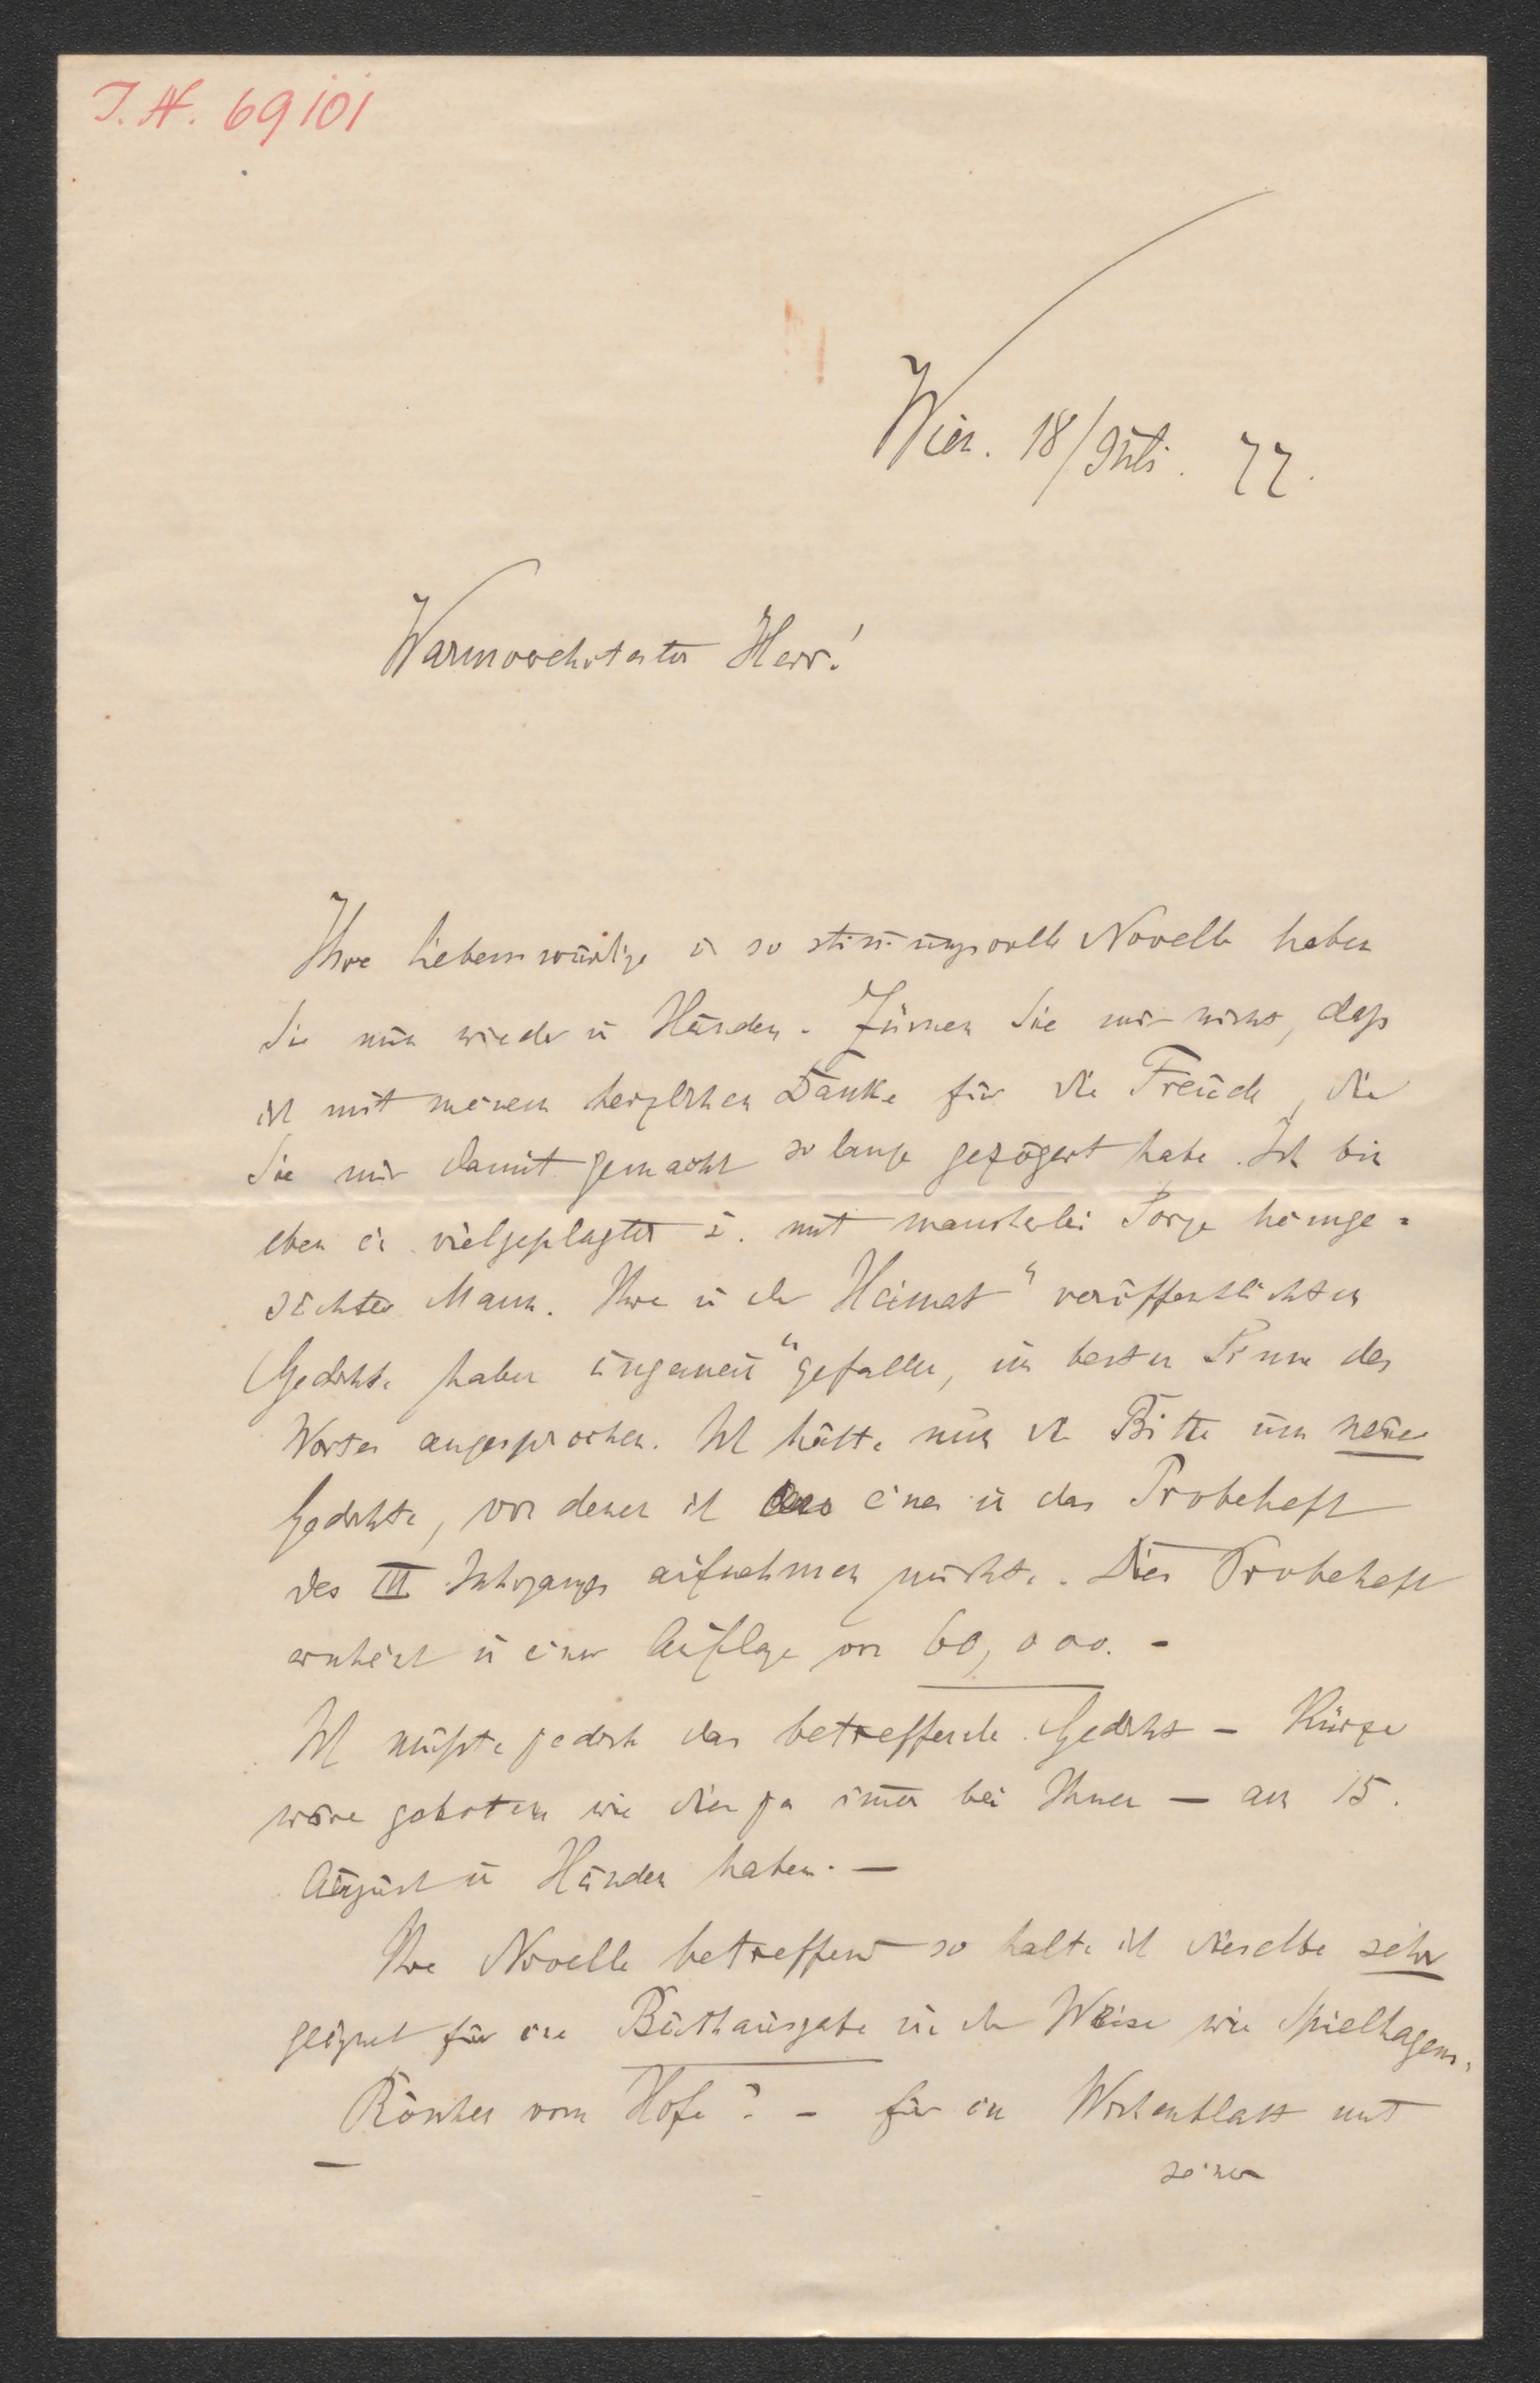 J. N. 69101
Wien. 18/Juli. 77.
Warmverehrtester Herr!
Ihre liebenswürdige u so stimmungsvolle Novelle haben
Sie nun wieder in Händen. Zürnen Sie mir nicht, daß
ich mit meinem herzlichen Danke für die Freude, die
Sie mir damit gemacht so lange gezögert habe. Ich bin
eben ein vielgeplagter u. mit mancherlei Sorge heimge=
suchter Mann. Ihre in der Heimat" veröffentlichten
Gedichte haben ungemein "gefallen, im besten Sinne des
Wortes angesprochen. Ich hätte nun die Bitte um neue
Gedichte, von denen ich eines in das Probeheft
des III Jahrgangs aufnehmen möchte. Dies Probeheft
erscheint in einer Auflage von 60,000. -
Ich müßte jedoch das betreffende Gedicht - Kürze
wäre geboten wie dies ja immer bei Ihnen — am 15.
August in Händen haben. —
Ihre Novelle betreffend so halte ich dieselbe sehr
geeignet für eine Buchausgabe in der Weise wie Spielhagens
Röschen vom Hofe? - für ein Wochenblatt mit
seiner